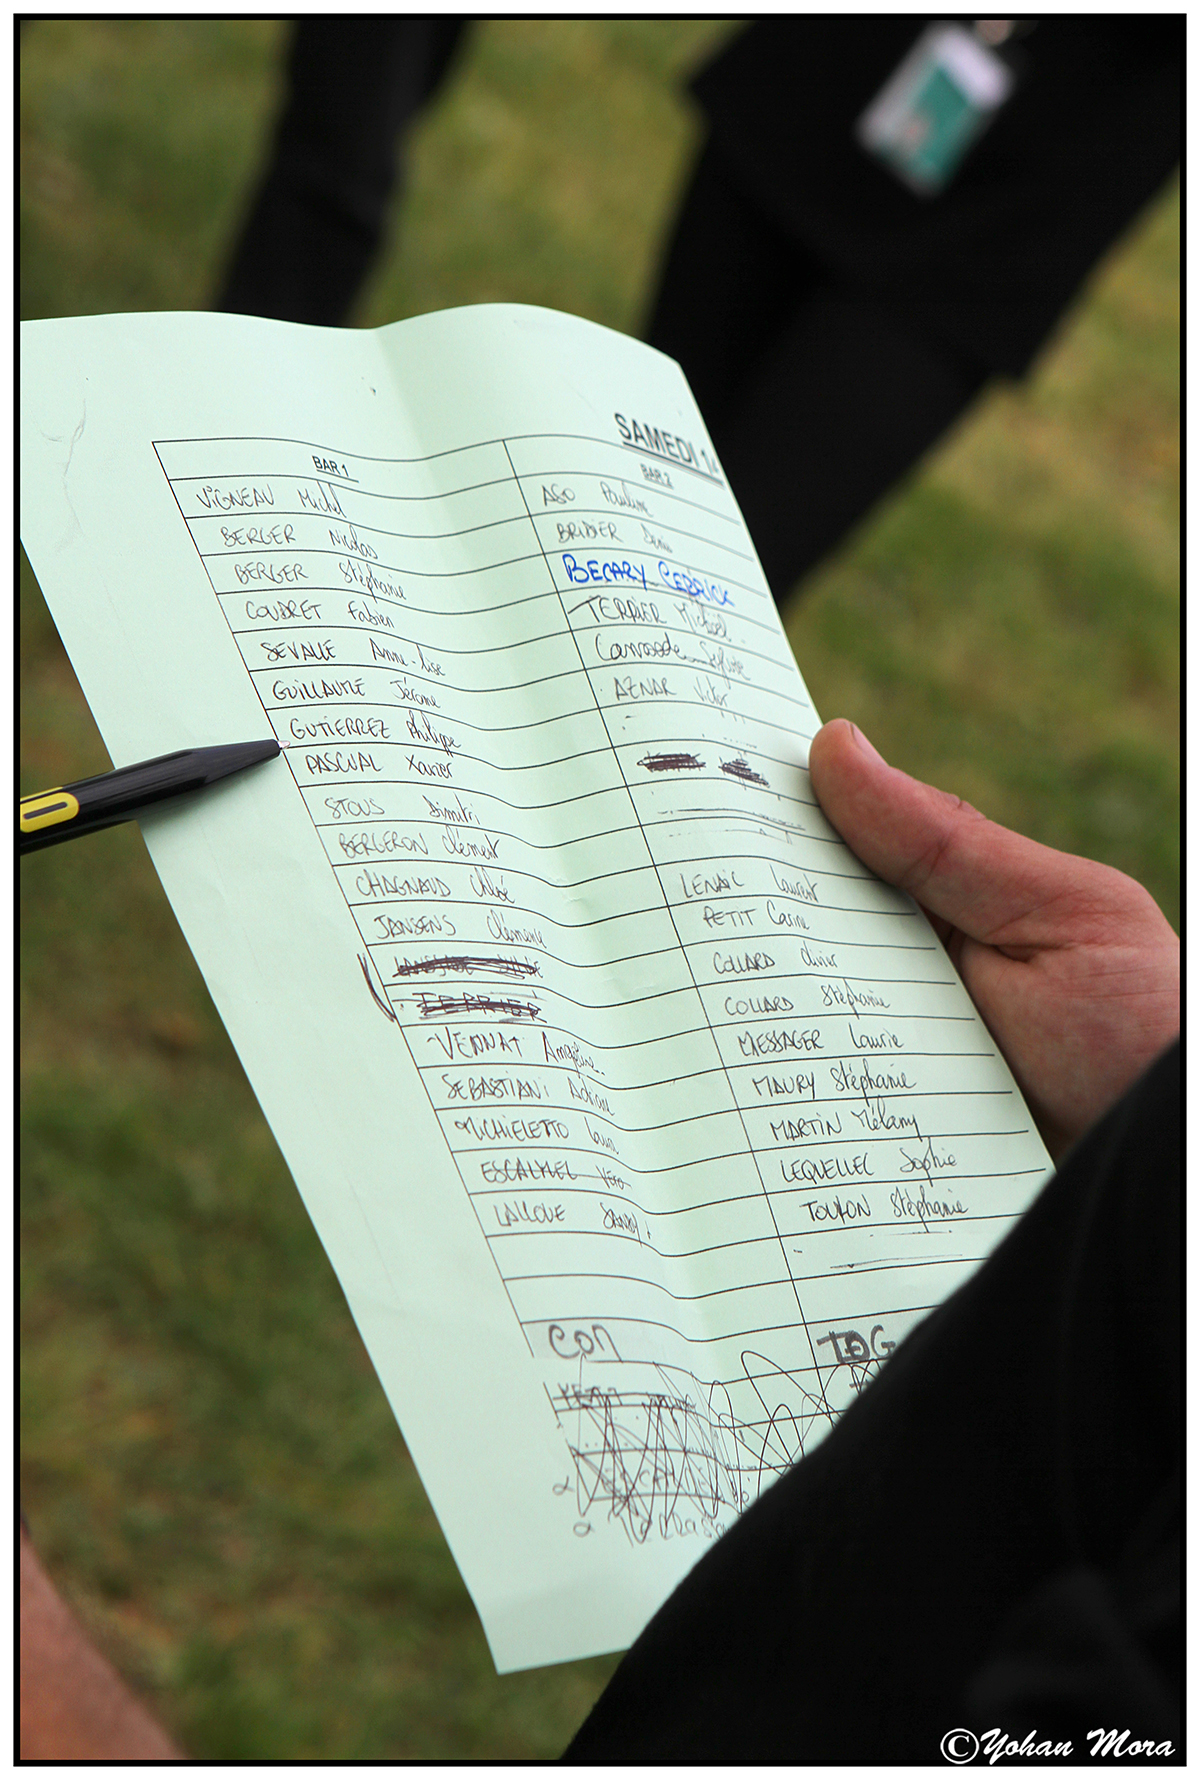 SAMEDI 14
BAR 1
VIGNEAU Michel
BERGER Nicolas
BERGER Stéphanie
COUDRET Fabien
SEVALLE Anne-lise
GUILLAUME Jérome
GUTIERREZ Philippe
PASCUAL Xavier
STOUS Dimitri
BERGERON Clément
CHAGNAUD Chloé
JANSENS Clémence
TERRIER
VENNAT Angéline
SEBASTIANI Adriane
MICHIELETTO Laura
ESCALMEL Véro
LALLOUE SANDY
CON
BAR 2
AGO Pauline
BRIDIER Denis
BECARY CEDRICK
TERRIER Michaël
Canrosede Sylvie
AZNAR Victor
LENAIC Laurent
PETIT Carine
COLLARD Olivier
COLLARD Stéphanie
MESSAGER Laurie
MAURY Stéphanie
MARTIN Mélany
LEQUELLEC Sophie
TOULON Stéphanie
TOG
©Yohan Mora